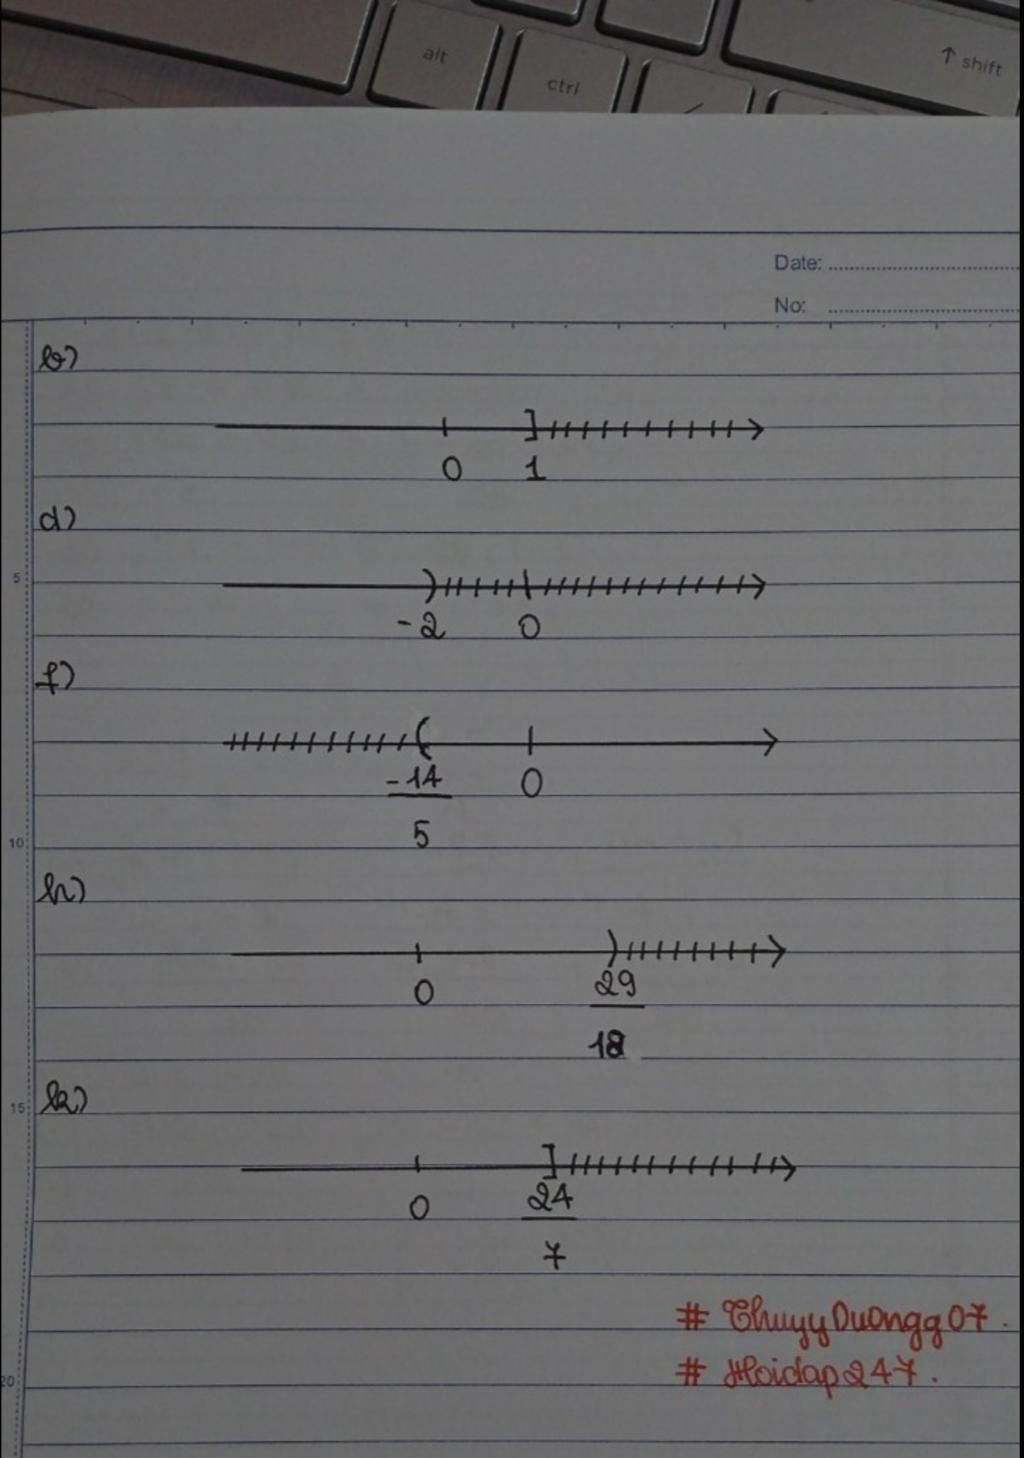 alt
ctrl
↑ shift
Date:
No:
b)
0 1
d)
5
-2 0
f)
-14 0
5
10
h)
0 29
18
15
k)
0 24
7
# ThuyyDuongg07.
# Hoidap247.
20